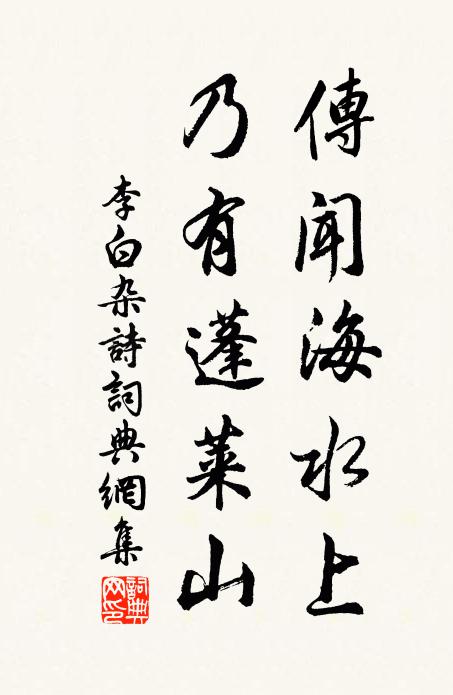 傳聞海水上
乃有蓬萊山
李白杂詩詞典網集
詞典网印